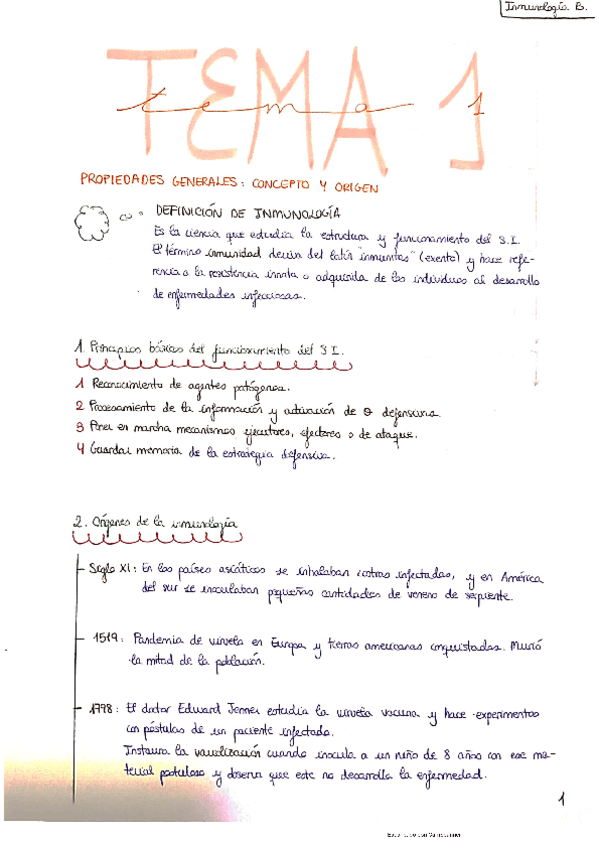 Inmunología B.
TEMA 1
tema 1
PROPIEDADES GENERALES: CONCEPTO Y ORIGEN
DEFINICIÓN DE INMUNOLOGÍA
Es la ciencia que estudia la estructura y funcionamiento del S.I.
El término inmunidad deriva del latín "inmunitas" (exento) y hace refe-
rencia a la resistencia innata o adquirida de los individuos al desarrollo
de enfermedades infecciosas.
1. Principios básicos del funcionamiento del S.I.
1 Reconocimiento de agentes patógenos.
2 Procesamiento de la información y activación de defensivas.
3 Poner en marcha mecanismos ejecutores, efectores o de ataque.
4 Guardar memoria de la estrategia defensiva.
2. Orígenes de la inmunología
Siglo XI: En los países asiáticos se inhalaban costras infectadas, y en América
del sur se inoculaban pequeñas cantidades de veneno de serpiente.
1519: Pandemia de viruela en Europa y tierras americanas conquistadas. Murió
la mitad de la población.
1798: El doctor Edward Jenner estudia la viruela vacuna y hace experimentos
con pústulas de un paciente infectado.
Instaura la vacunalización cuando inocula a un niño de 8 años con ese ma-
terial pustuloso y observa que este no desarrolla la enfermedad.
1